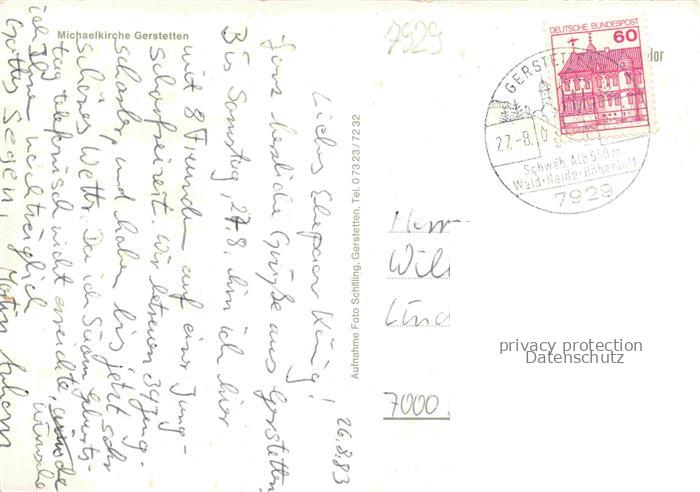 Michaelkirche Gerstetten
7929
DEUTSCHE BUNDESPOST
60
GERSTETTEN
27.-8.
Schwäb. Alb 550 m
Wald-Heide-Höhenluft
7929
Aufnahme Foto Schilling, Gerstetten, Tel. 0 73 23 / 72 32
26.8.83
Liebes Ehepaar König!
Ganz herzliche Grüße aus Gerstetten.
Bis Samstag, 27.8. bin ich hier
mit 8 Freunden auf einer Jung-
scharfreizeit. Wir betreuen 34 Jung-
scharler, und haben bis jetzt sehr
schönes Wetter. Da ich Sie am Geburts-
tag telefonisch nicht erreichte, wünsche
ich Ihnen nachträglich
Gottes Segen, Martin
Herrn
Wil
Lind
7000
privacy protection
Datenschutz